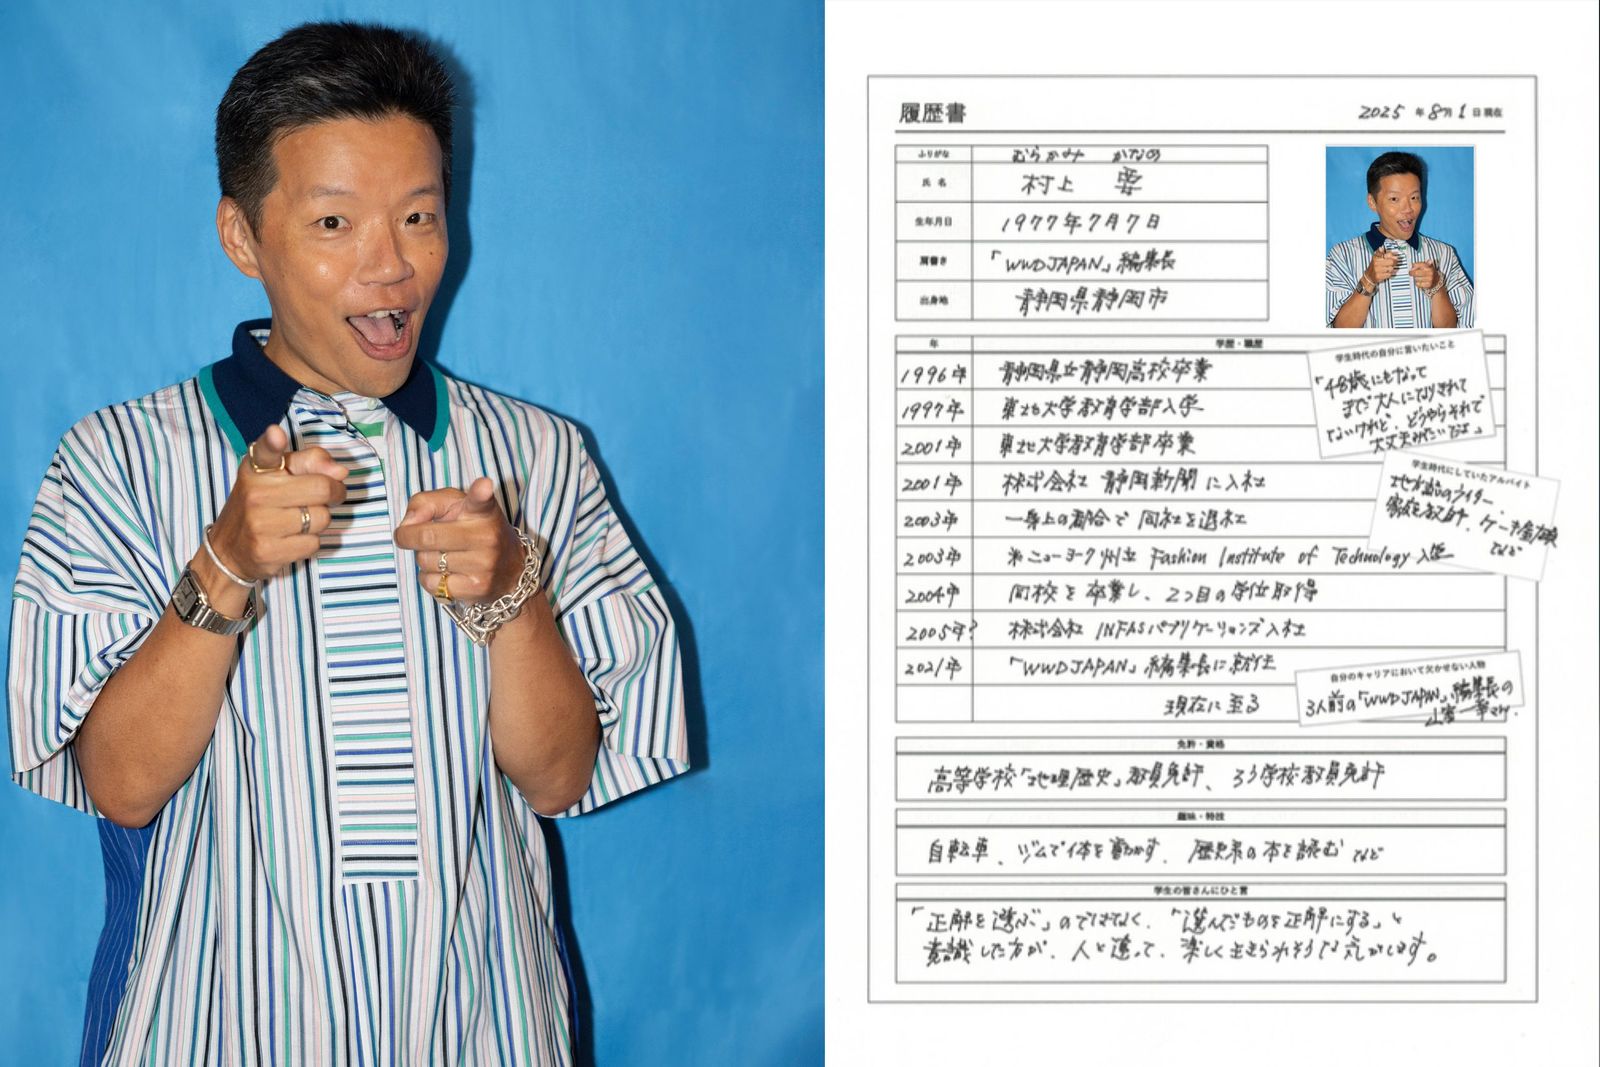 履歴書
2025 年 8月 1日現在
ふりがな むらかみ かなめ
氏名 村上 要
生年月日 1977年7月7日
肩書き 「WWDJAPAN」編集長
出身地 静岡県静岡市
年 学歴・職歴
1996年 静岡県立静岡高校卒業
1997年 東北大学教育学部入学
2001年 東北大学教育学部卒業
2001年 株式会社 静岡新聞に入社
2003年 一身上の都合で 同社を退社
2003年 米ニューヨーク州立 Fashion Institute of Technology 入学
2004年 同校を卒業し、2つ目の学位取得
2005年? 株式会社 INFASパブリケーションズ入社
2021年 「WWDJAPAN」編集長に就任
現在に至る
学生時代の自分に言いたいこと
「48歳にもなって
まだ大人になりきれて
ないけれど、どうやらそれで
大丈夫みたいだよ」
学生時代にしていたアルバイト
地方誌のライター、
家庭教師、ケーキ屋
など
自分のキャリアにおいて欠かせない人物
3人前の「WWDJAPAN」編集長の
山室一幸さん。
免許・資格
高等学校「地理歴史」教員免許、ろう学校教員免許
趣味・特技
自転車、ジムで体を動かす、歴史系の本を読む など
学生の皆さんにひと言
「正解を選ぶ」のではなく、「選んだものを正解にする」と
意識した方が、人と違って、楽しく生きられそうな気がします。